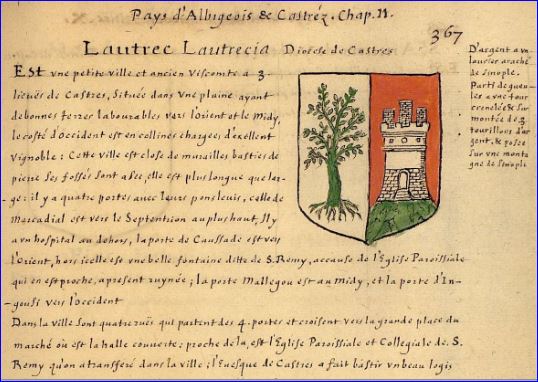 Pays d'Albigeois & Castréz. Chap. II.
367
Lautrec Lautrecia Diocèse de Castres
Est vne petite ville et ancien Viscomte a 3.
lieües de Castres, Située dans vne plaine ayant
de bonnes terres labourables vers l'orient et le Midy,
le costé d'Occident est en collines chargees d'exellent
Vignoble : Cette ville est close de murailles basties de
pierre Ses fossés sont asec, elle est plus longue que lar-
ge : il y a quatre portes avec leurs ponsleuis, celle de
Marcadial est vers le Septentrion au plus haut, Il y
a vn hospital au dehors, la porte de Caussade est vers
l'Orient, hors icelle est vne belle fontaine ditte de S. Remy, a cause de l'Eglise Paroissiale
qui en est proche, apresent ruynée ; la porte Mallegou est au Midy, et la porte d'In-
-goust vers l'occident
Dans la ville sont quatre ruës qui partent des 4. portes et croisent vers la grande place du
marché où est la halle couverte ; proche de la, est l'Eglise Paroissiale et Collegiale de S.
Remy qu'on a transferé dans la ville ; l'Euesque de Castres a fait bastir vn beau logis
D'argent a vn
laurier araché
de sinople.
Parti de gueu-
les a vne tour
crenelée & sur
montée de 3
tourillons d'ar
gent, & posée
sur vne monta
gne de sinople